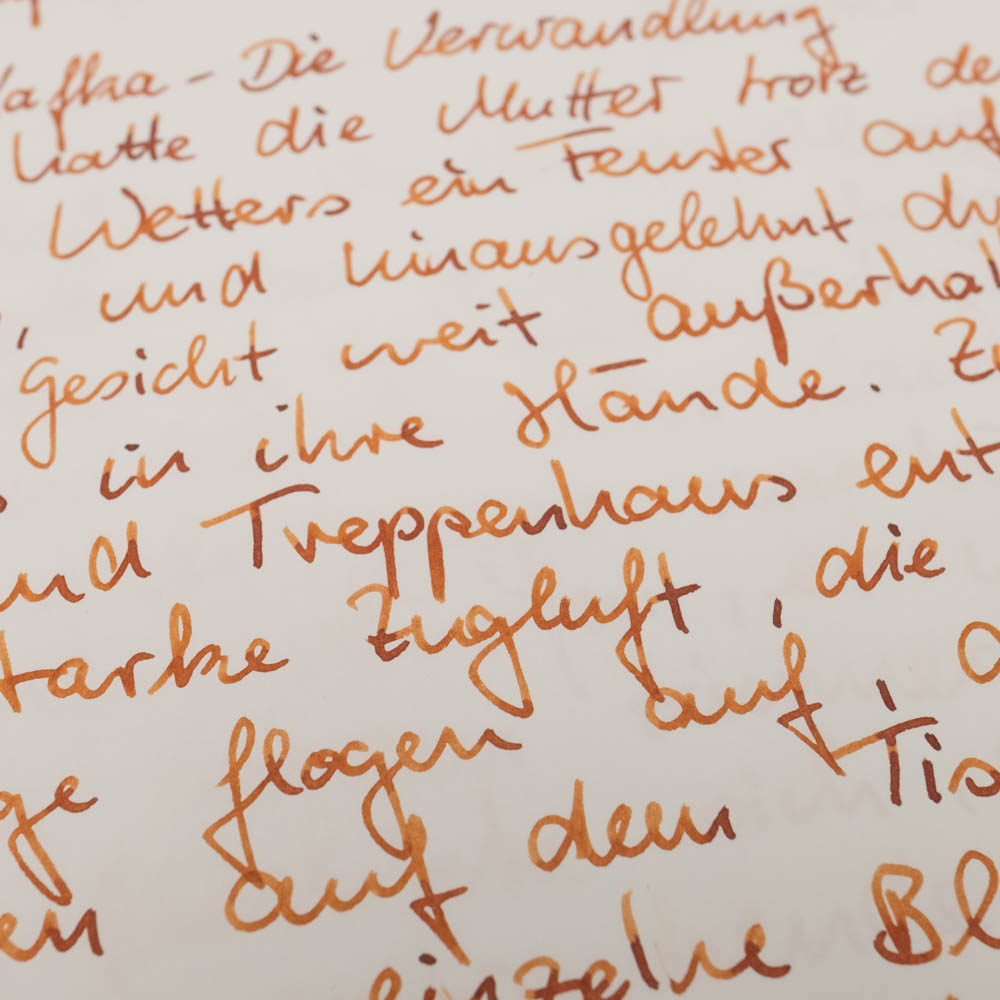 Kafka – Die Verwandlung
hatte die Mutter trotz de
Wetters ein Fenster auf
, und hinausgelehnt dr
Gesicht weit außerhal
in ihre Hände. Zw
und Treppenhaus ent
starke Zugluft, die
ge flogen auf, d
en auf dem Tis
einzelne Bl